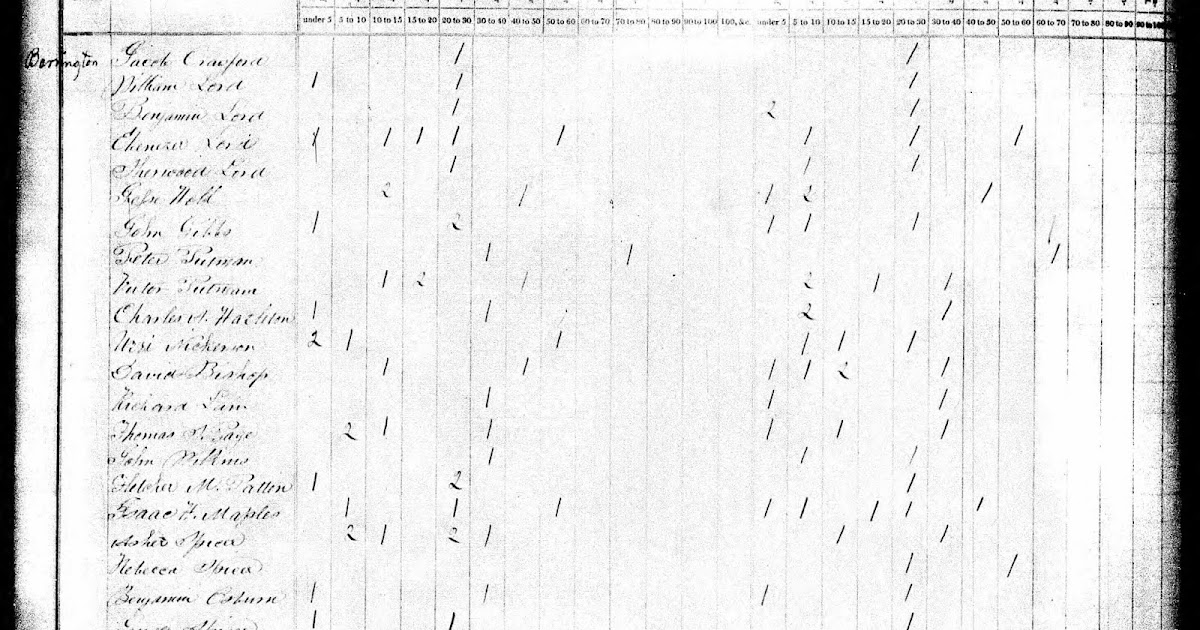 under 5 5 to 10 10 to 15 15 to 20 20 to 30 30 to 40 40 to 50 50 to 60 60 to 70 70 to 80 80 to 90 90 to 100 100, &c. under 5 5 to 10 10 to 15 15 to 20 20 to 30 30 to 40 40 to 50 50 to 60 60 to 70 70 to 80 80 to 90
Barrington Jacob Crawford 1 1
William Lord 1 1 1
Benjamin Lord 1 2 1
Ebenezer Lord 1 1 1 1 1 1 1 1
Sherwood Lord 1 1 1
Jesse 2 1 1 2 1
John Gibbs 1 2 1 1 1
Peter Putnam 1 1 1
Putnam 1 2 1 2 1 1
Charles A. Hazleton 1 1 2 1
Nickerson 2 1 1 1 1 1
David Bishop 1 1 1 1 2 1
Richard 1 1 1
Thomas Page 2 1 1 1 1 1
John Wilkins 1 1 1
Fletcher M. Patton 1 2 1
Isaac F. Maples 1 1 1 1 1 1 1 1
Asher 2 1 2 1 1 1
Rebecca 1 1
Benjamin Osburn 1 1 1 1
1 1 1